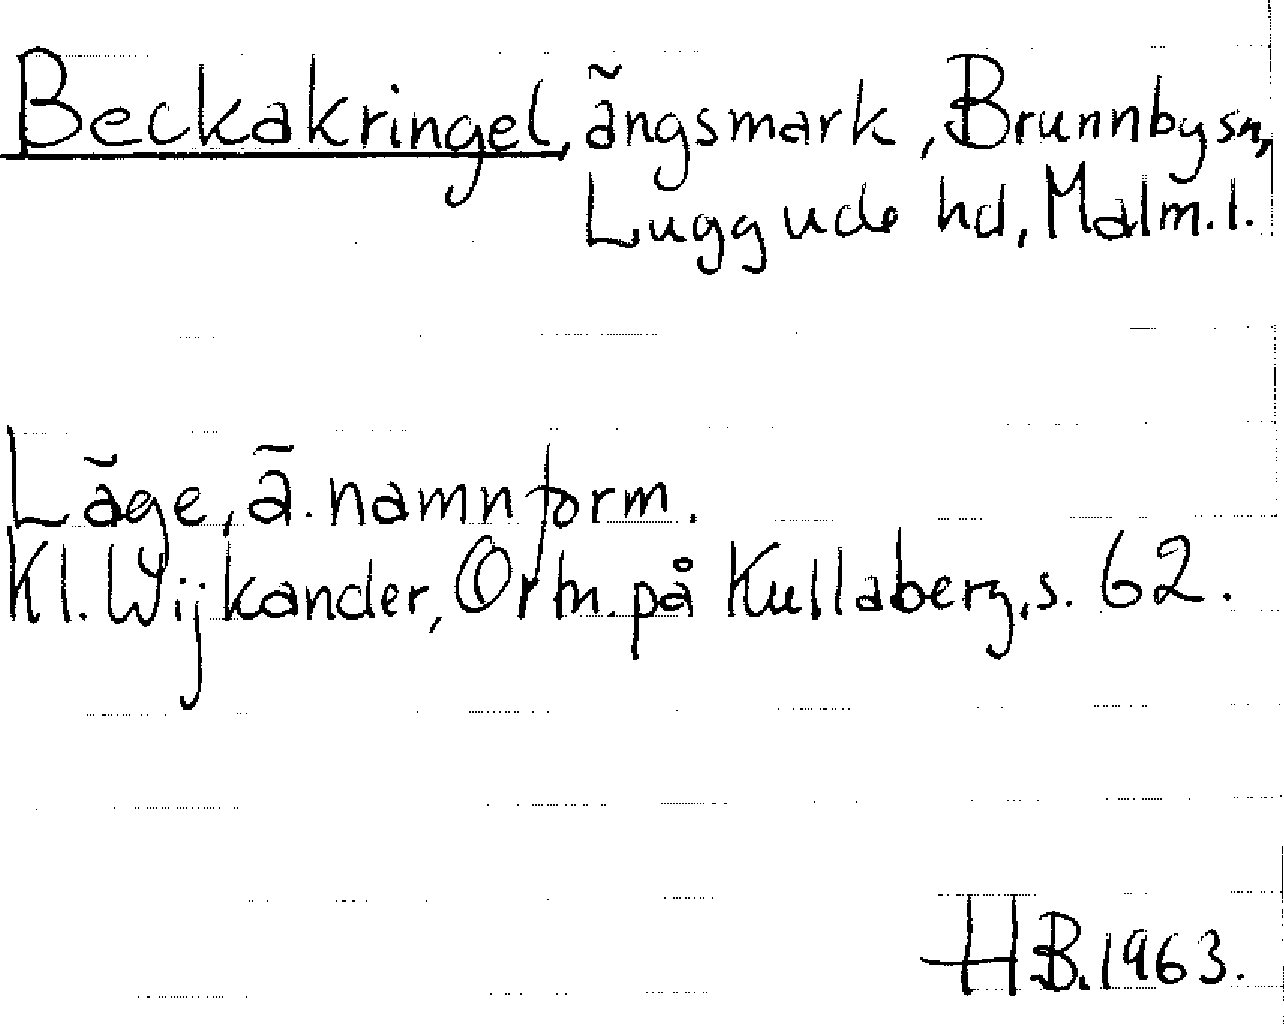 Beckakringel, ängsmark, Brunnby sn,
Luggude hd, Malm. l.
Läge, ä. namnform.
Kl. Wijkander, Ortn. på Kullaberg, s. 62.
H B. 1963.